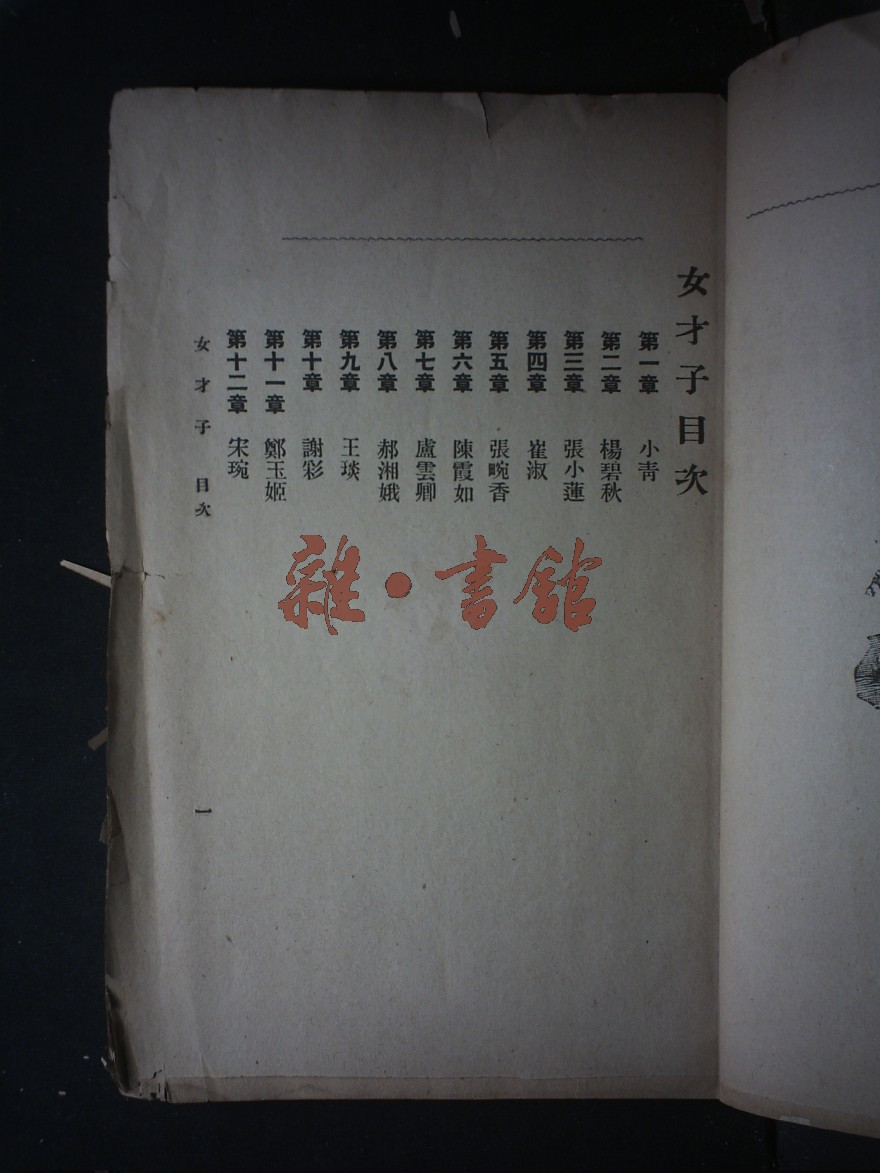 女才子目次
第一章 小青
第二章 楊碧秋
第三章 張小蓮
第四章 崔淑
第五章 張畹香
第六章 陳霞如
第七章 盧雲卿
第八章 郝湘娥
第九章 王琰
第十章 謝彩
第十一章 鄭玉姬
第十二章 宋琬
女才子 目次 一
雜·書館